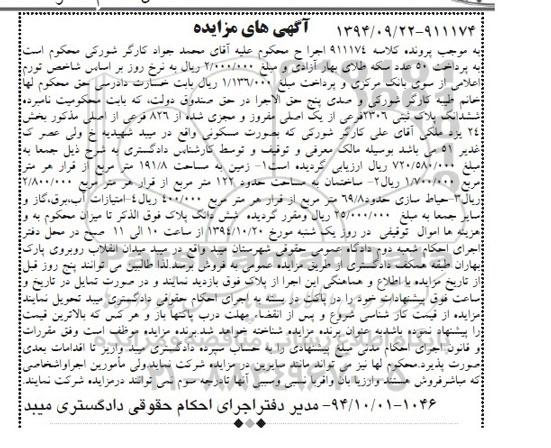 آگهی های مزایده
۹۱۱۱۷۴-۱۳۹۴/۰۹/۲۲
به موجب پرونده کلاسه ۹۱۱۱۷۴ اجرا ج محکوم علیه آقای محمد جواد کارگر شورکی محکوم است
به پرداخت ۵۰ عدد سکه طلای بهار آزادی و مبلغ ۲/۰۰۰/۰۰۰ ریال به نرخ روز بر اساس شاخص تورم
اعلامی از سوی بانک مرکزی و پرداخت مبلغ ۱/۱۳۶/۰۰۰ ریال بابت خسارت دادرسی حق محکوم لها
خانم طیبه کارگر شورکی و صدی پنج حق الاجرا در حق صندوق دولت، که بابت محکومیت نامبرده
ششدانگ پلاک ثبتی ۲۳۰۶فرعی از یک اصلی مفروز و مجزی شده از ۸۲۶ فرعی از اصلی مذکور بخش
۲۴ یزد ملکی آقای علی کارگر شورکی که بصورت مسکونی واقع در میبد شهیدیه خ ولی عصر ک
غدیر ۵۱ می باشد بوسیله مالک معرفی و توقیف و توسط کارشناس دادگستری به شرح ذیل جمعا به
مبلغ ۷۲۰/۵۸۰/۰۰۰ ریال ارزیابی گردیده است۱- زمین به مساحت ۱۹۱/۸ متر مربع از قرار هر متر
مربع ۱/۷۰۰/۰۰۰ ریال۲- ساختمان به مساحت حدود ۱۲۲ متر مربع از قرار هر متر مربع ۲/۸۰۰/۰۰۰
ریال۳-حیاط سازی حدود۶۹/۸ متر مربع از قرار هر متر مربع ۴۰۰/۰۰۰ ریال٤-امتیازات آب،برق،گاز و
سایر جمعا به مبلغ ۲۵/۰۰۰/۰۰۰ ریال ومقرر گردیده شش دانگ پلاک فوق الذکر تا میزان محکوم به و
هزینه ها اموال توقیفی در روز یک شنبه مورخ ۱۳۹۴/۱۰/۲۰ از ساعت ۱۰ الی ۱۱ صبح در محل دفتر
اجرای احکام شعبه دوم دادگاه عمومی حقوقی شهرستان میبد واقع در میبد میدان انقلاب روبروی پارک
بهاران طبقه همکف دادگستری از طریق مزایده عمومی به فروش برسد.لذا طالبین می توانند پنج روز قبل
از تاریخ مزایده با اطلاع و هماهنگی این اجرا از پلاک فوق بازدید نمایند و در صورت تمایل در تاریخ و
ساعت فوق پیشنهادات خود را در پاکت در بسته به اجرای احکام حقوقی دادگستری میبد تحویل نمایند
مزایده از قیمت کار شناسی شروع و پس از انقضاء مهلت درب پاکتها باز و هر کس که بالاترین قیمت
را پیشنهاد نموده باشد به عنوان برنده مزایده شناخته خواهد شد.برنده مزایده موظف است وفق مقررات
و قانون اجرای احکام مدنی مبلغ پیشنهادی را به حساب سپرده دادگستری میبد واریز تا اقدامات بعدی
صورت پذیرد.محکوم لها نیز می تواند مانند سایرین در مزایده شرکت نماید ولی مأمورین اجراواشخاصی
که مباشرفروش هستند وارزیا بان واقربا نسبی وسببی آنها تادرجه سوم نمی توانند درمزایده شرکت نمایند.
۹۴/۱۰/۰۱-۱۰۴۶- مدیر دفتراجرای احکام حقوقی دادگستری میبد